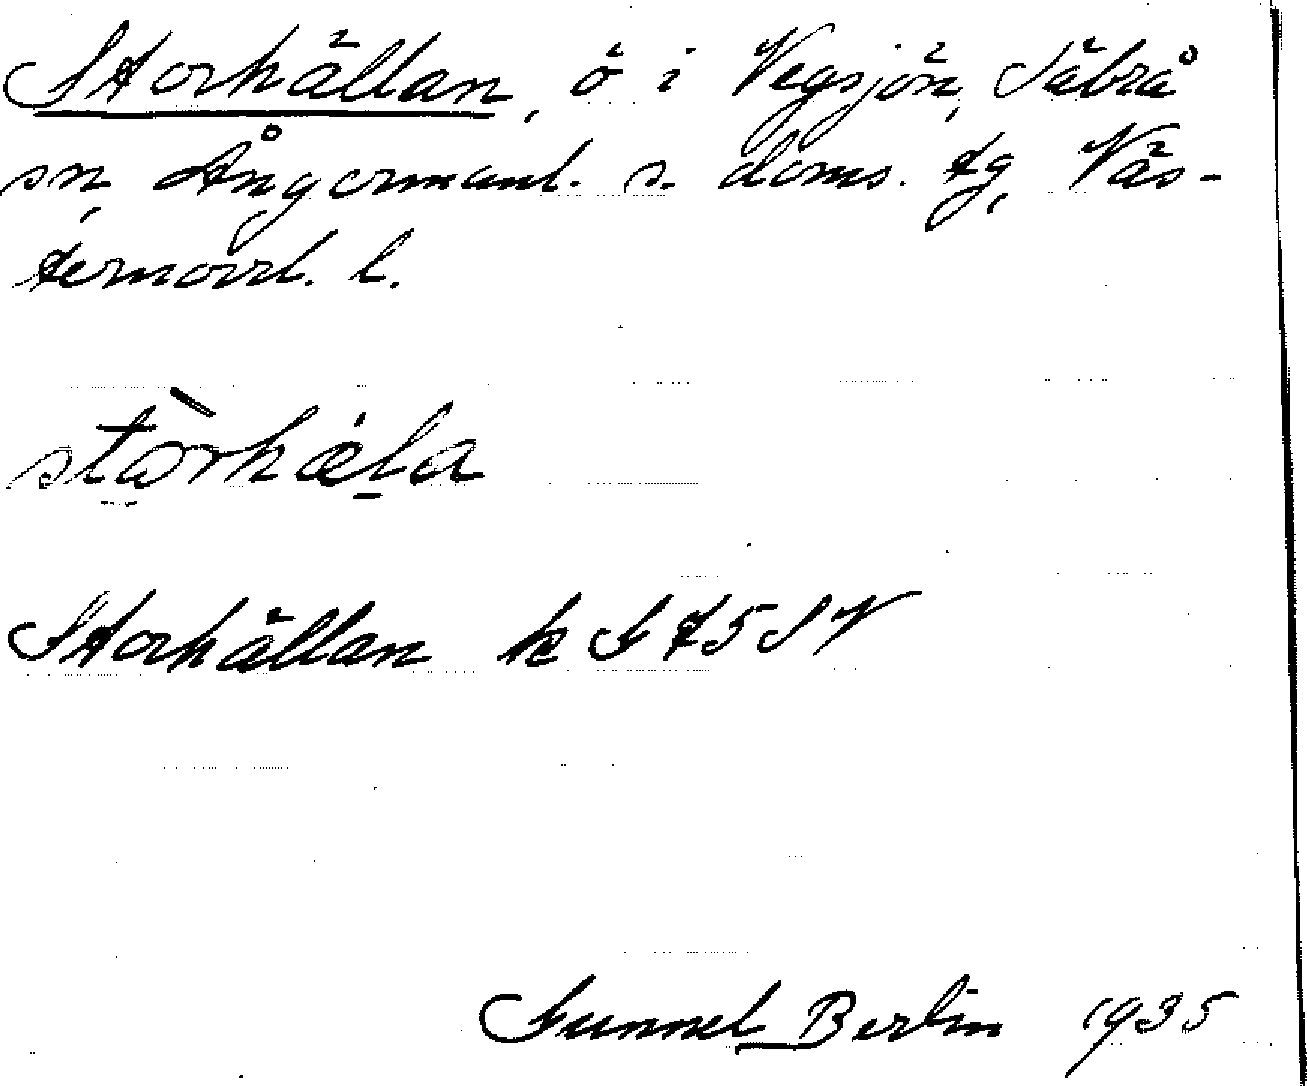 Storhällan, ö i Vegsjön, Säbrå
sn, Ångermanl. s. doms. tg, Väs-
ternorrl. l.
stòrhæla
Storhällan
Gunnel Berlin 1935